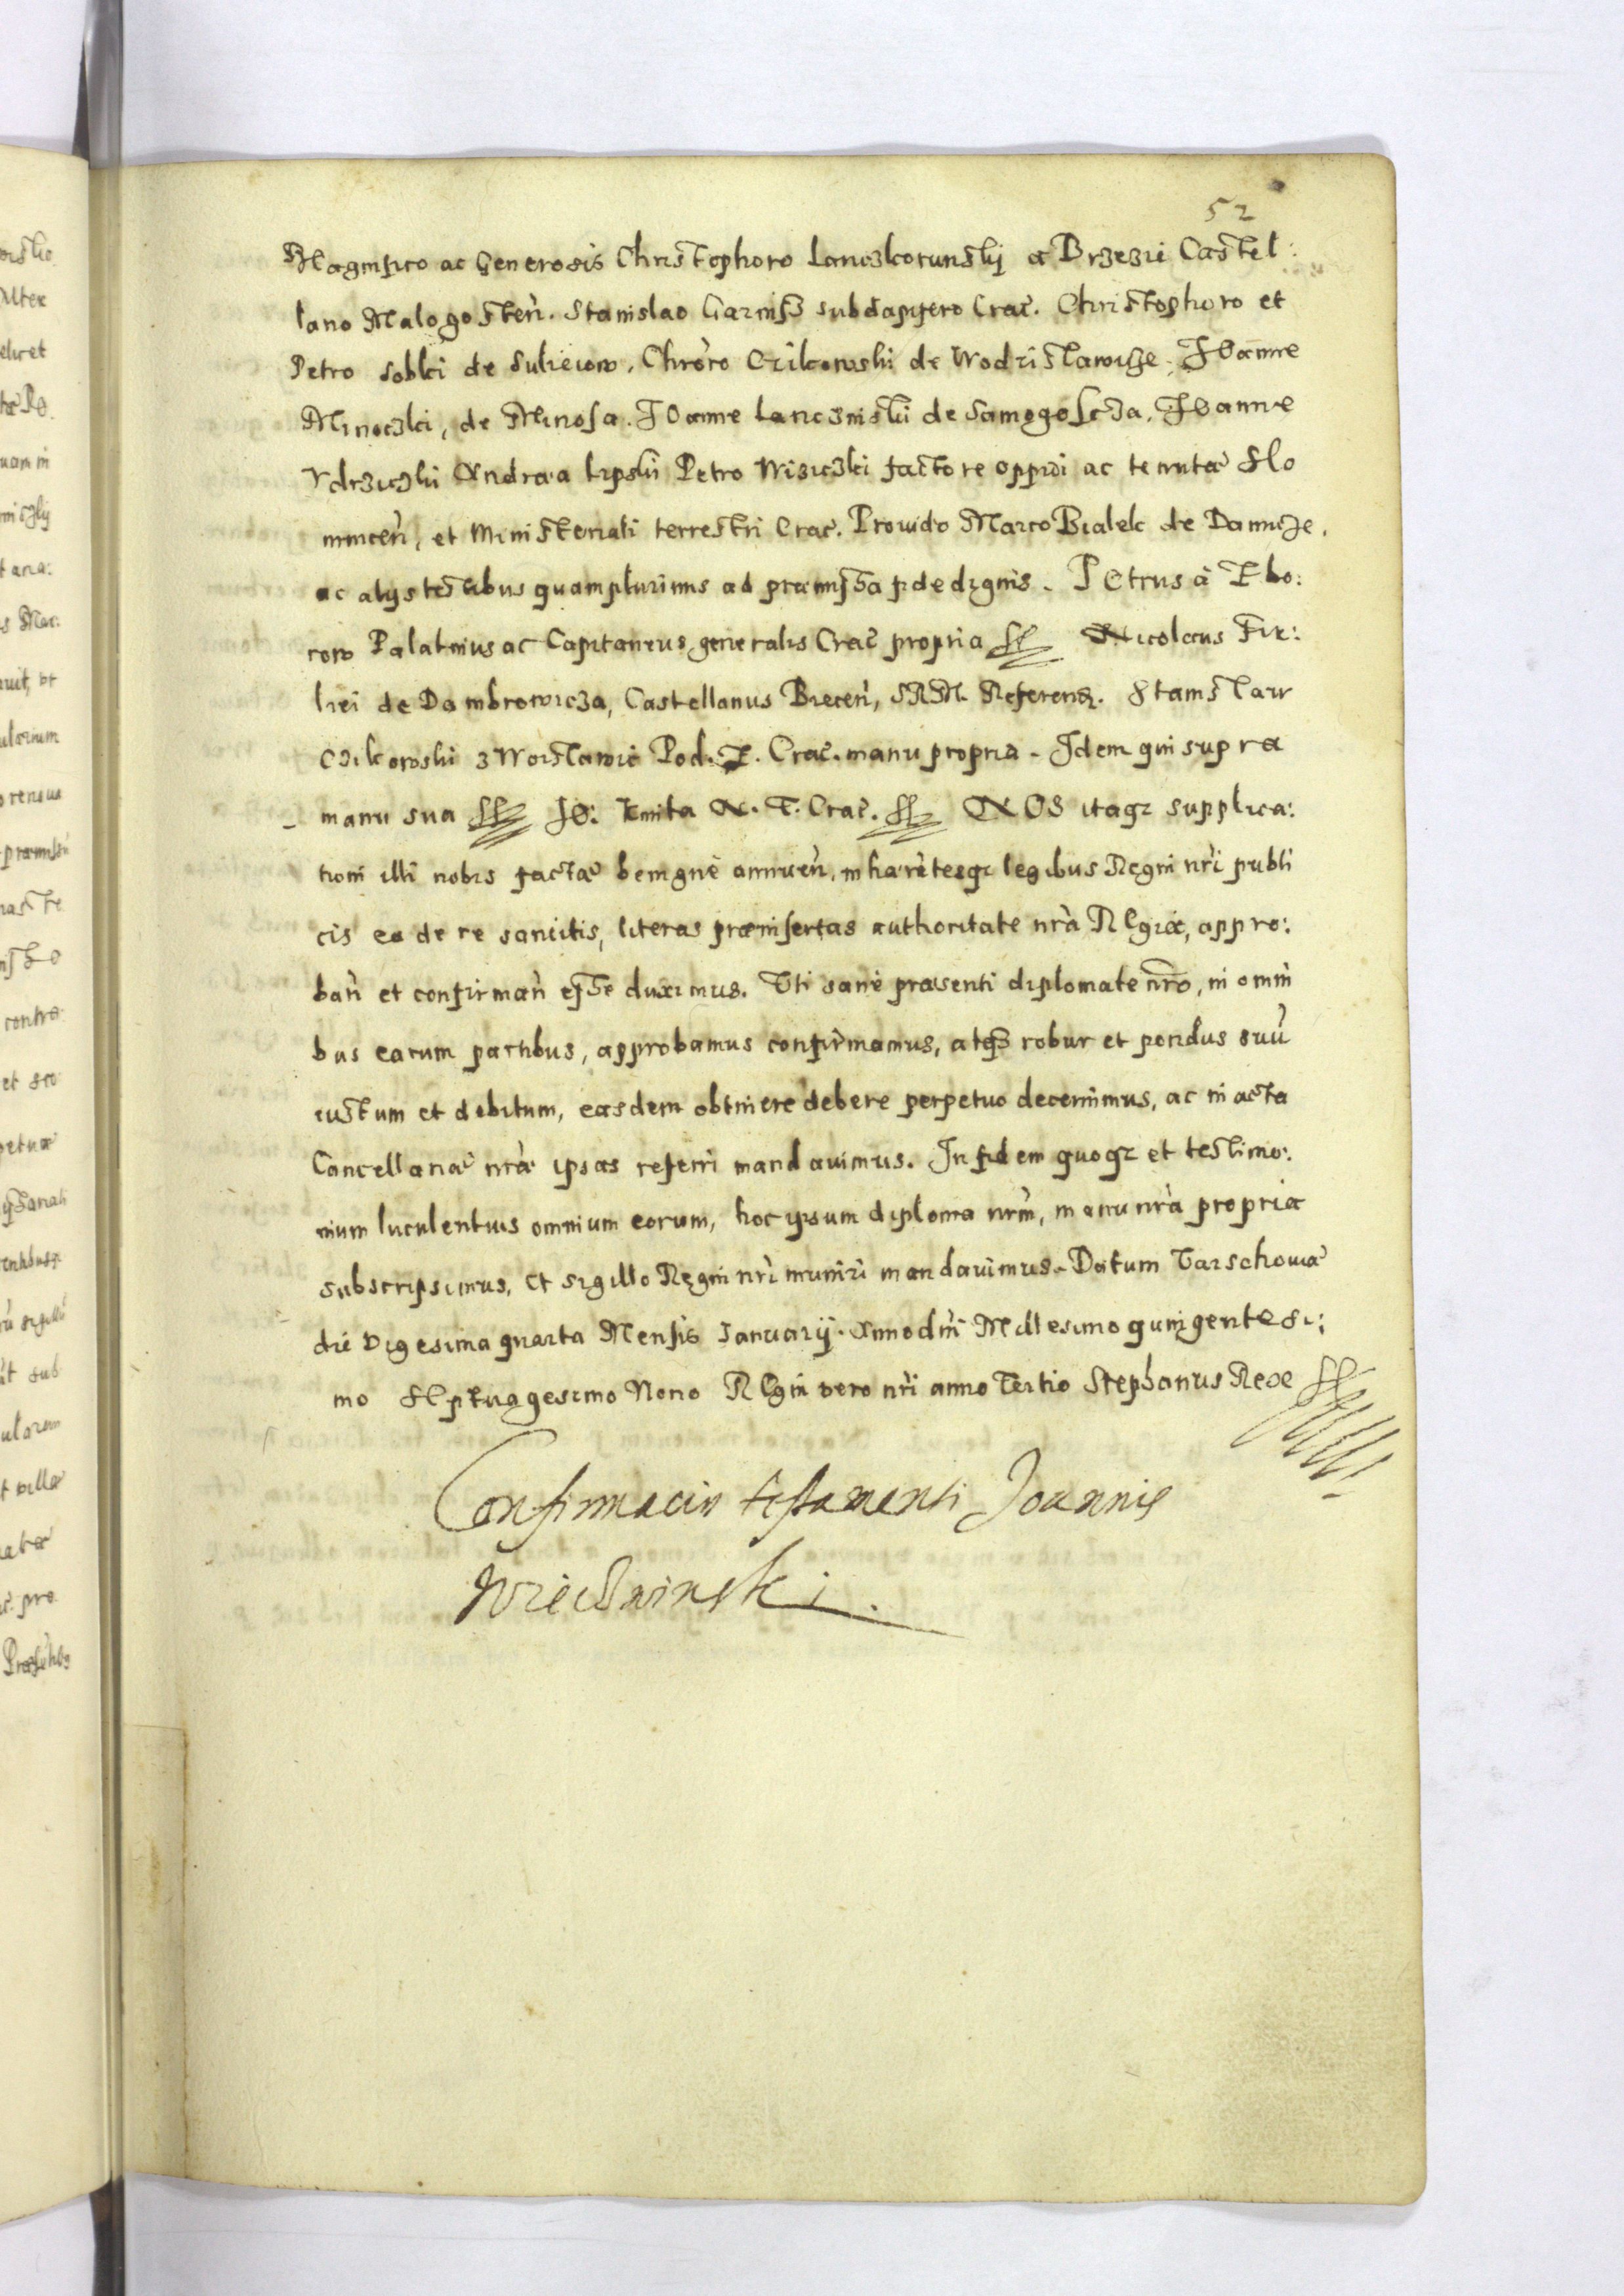 52
Magnifico ac Generosis Christophoro Lanczkorunskij a Brzezie Castel:
lano Malogosten̄. Stanislao Garnisz subdapifero Crac̄. Christophoro et
Petro sobki de Sulieiow, Chro͞ro Czikowski de Wodzislawicze. Joanne
Minoczki, de Minosa. Joanne Lanczinski de Samogoscza. Joanne
Vdrziczki Andræa Lipski Petro Wisiczki factore oppidi ac tenutæ Slo
mnicen̄, et Ministeriali terrestri Crac̄. Prouido Marco Bialek de Damicze,
ac alijs testibus quamplurimis ad præmissa fidedignis. PEtrus à Zbo:
row Palatinus ac Capitaneus generalis Crac̄ propria sst Nicolaus Fir:
liei de Dambrowicza, Castellanus Biecen̄, SRM. Referen. Stanislaw
Czikowski z Woislawic Pod. Z. Crac̄. manu propria. Idem qui supra
manu sua sst Jo: Kmita N. T. Crac̄. sst NOS itaqȝ supplica:
tioni illi nobis factæ benignè annuen̄, inhærētesqȝ legibus Regni nr̄i publi
cis ea de re sancitis, literas præinsertas authoritate nr̄a REgia, appro:
ban̄ et confirman̄ esse duximus. Vti sanè præsenti diplomate nr̄o, in omni
bus earum partibus, approbamus confirmamus, atqȝ robur et pondus suū
iustum et debitum, easdem obtinere debere perpetuo decernimus, ac in acta
Cancellariæ nr̄æ ipsas referri mandauimus. In fidem quoqȝ et testimo:
nium luculentius omnium eorum, hoc ipsum diploma nr̄m, manu nr̄a propria
subscripsimus, et sigillo Regni nr̄i muniri mandauimus. Datum Varschouiæ
die vigesima quarta Mensis Januarij. Anno dn̄i Millesimo quingentesi:
mo SEptuagesimo Nono REgni vero nr̄i anno Tertio Stephanus Rex sst
Confirmacio testamenti Joannis
Wiecwinski.